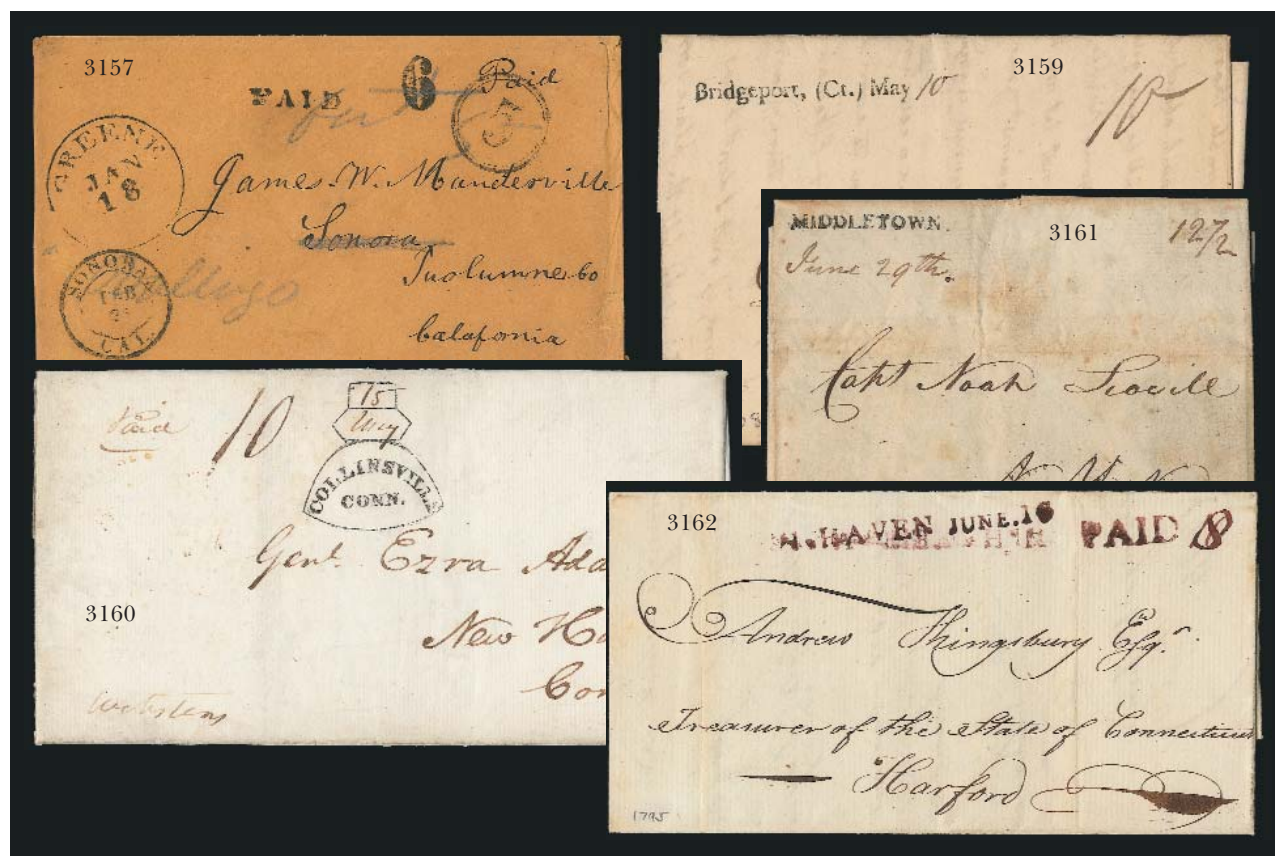 3157
PAID 6 Paid
5
GREENE
JAN
18
James. W. Manderville
Sonora,
Tuolumne Co
Calafornia
SONORA
FEB
CAL.
3159
Bridgeport, (Ct.) May 10
10
3161
MIDDLETOWN.
June 29th.
12½
Capt Noah Scovill
N. Y
3160
Paid 10
15
May
COLLINSVILLE
CONN.
Genl. Ezra Ada
New Ha
Con
3162
N. HAVEN JUNE. 16 PAID 8
Andrew Kingsbury Esqr.
Treasurer of the State of Connecticut
Harford
1795